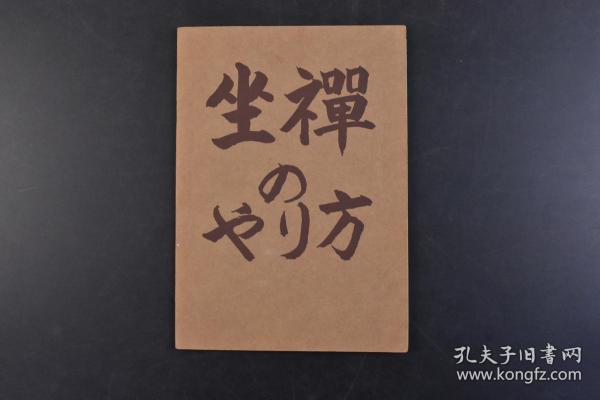 坐禪
の
やり方
孔夫子旧書网
www.kongfz.com